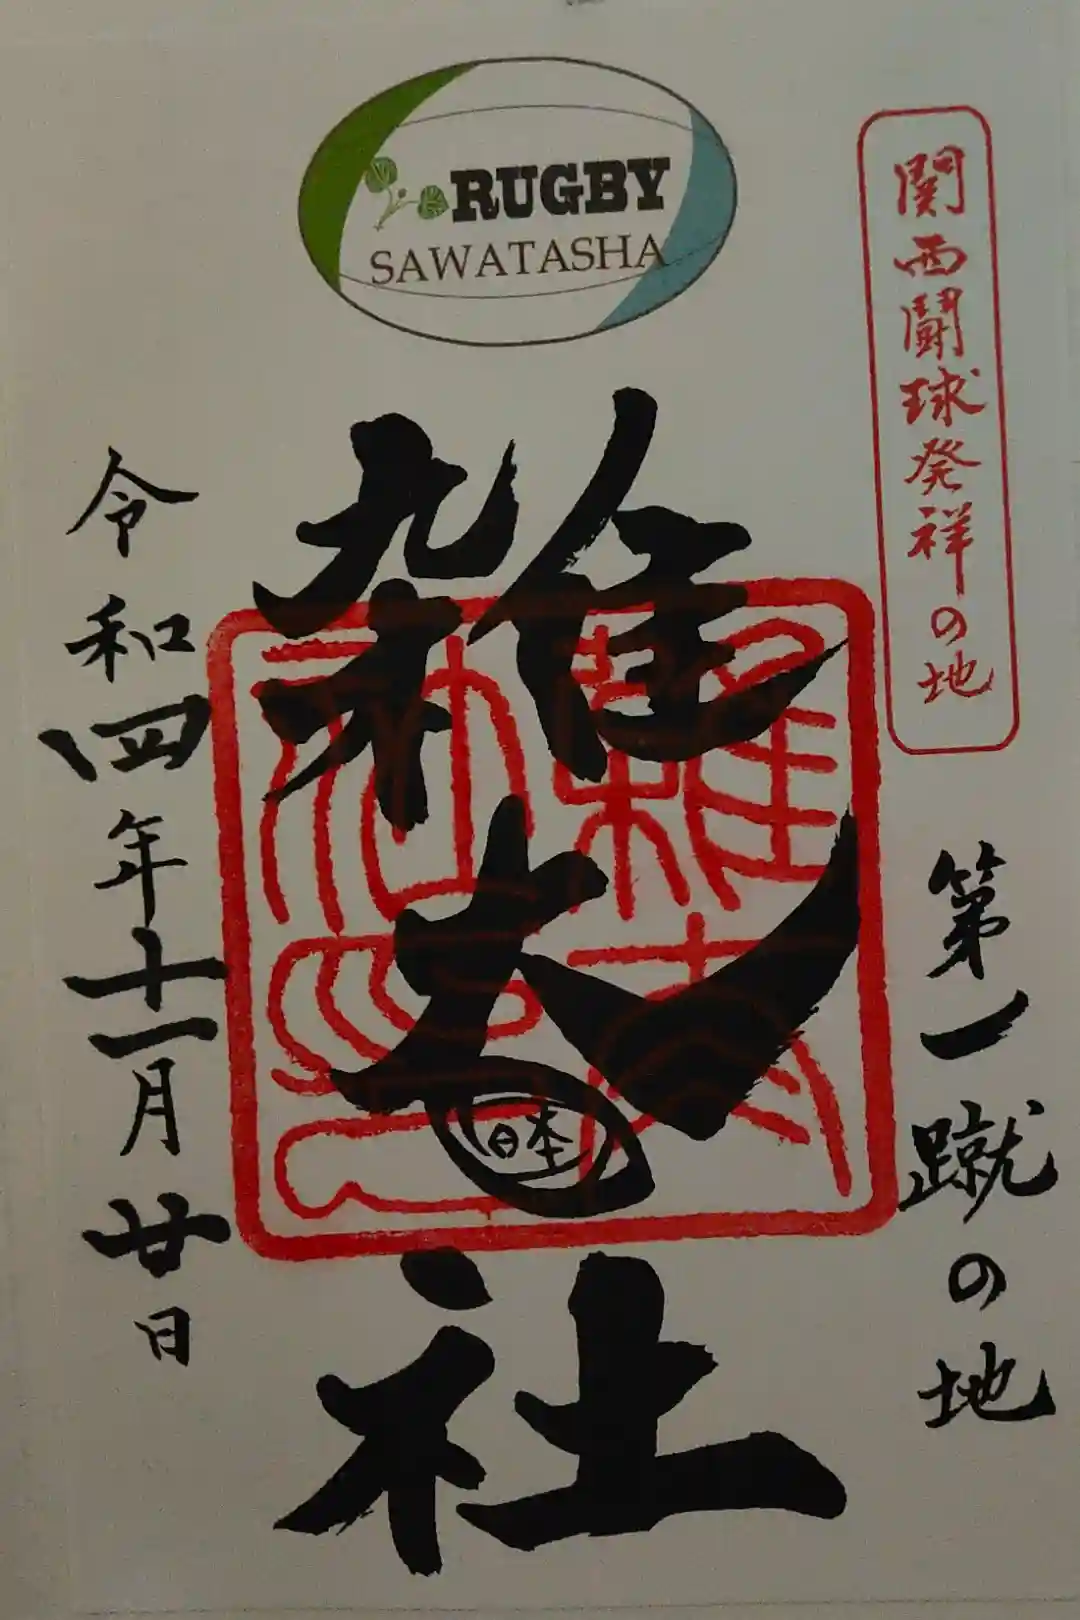 RUGBY
SAWATASHA
関西闘球発祥の地
第一蹴の地
雑太社
日本
令和四年十一月廿日